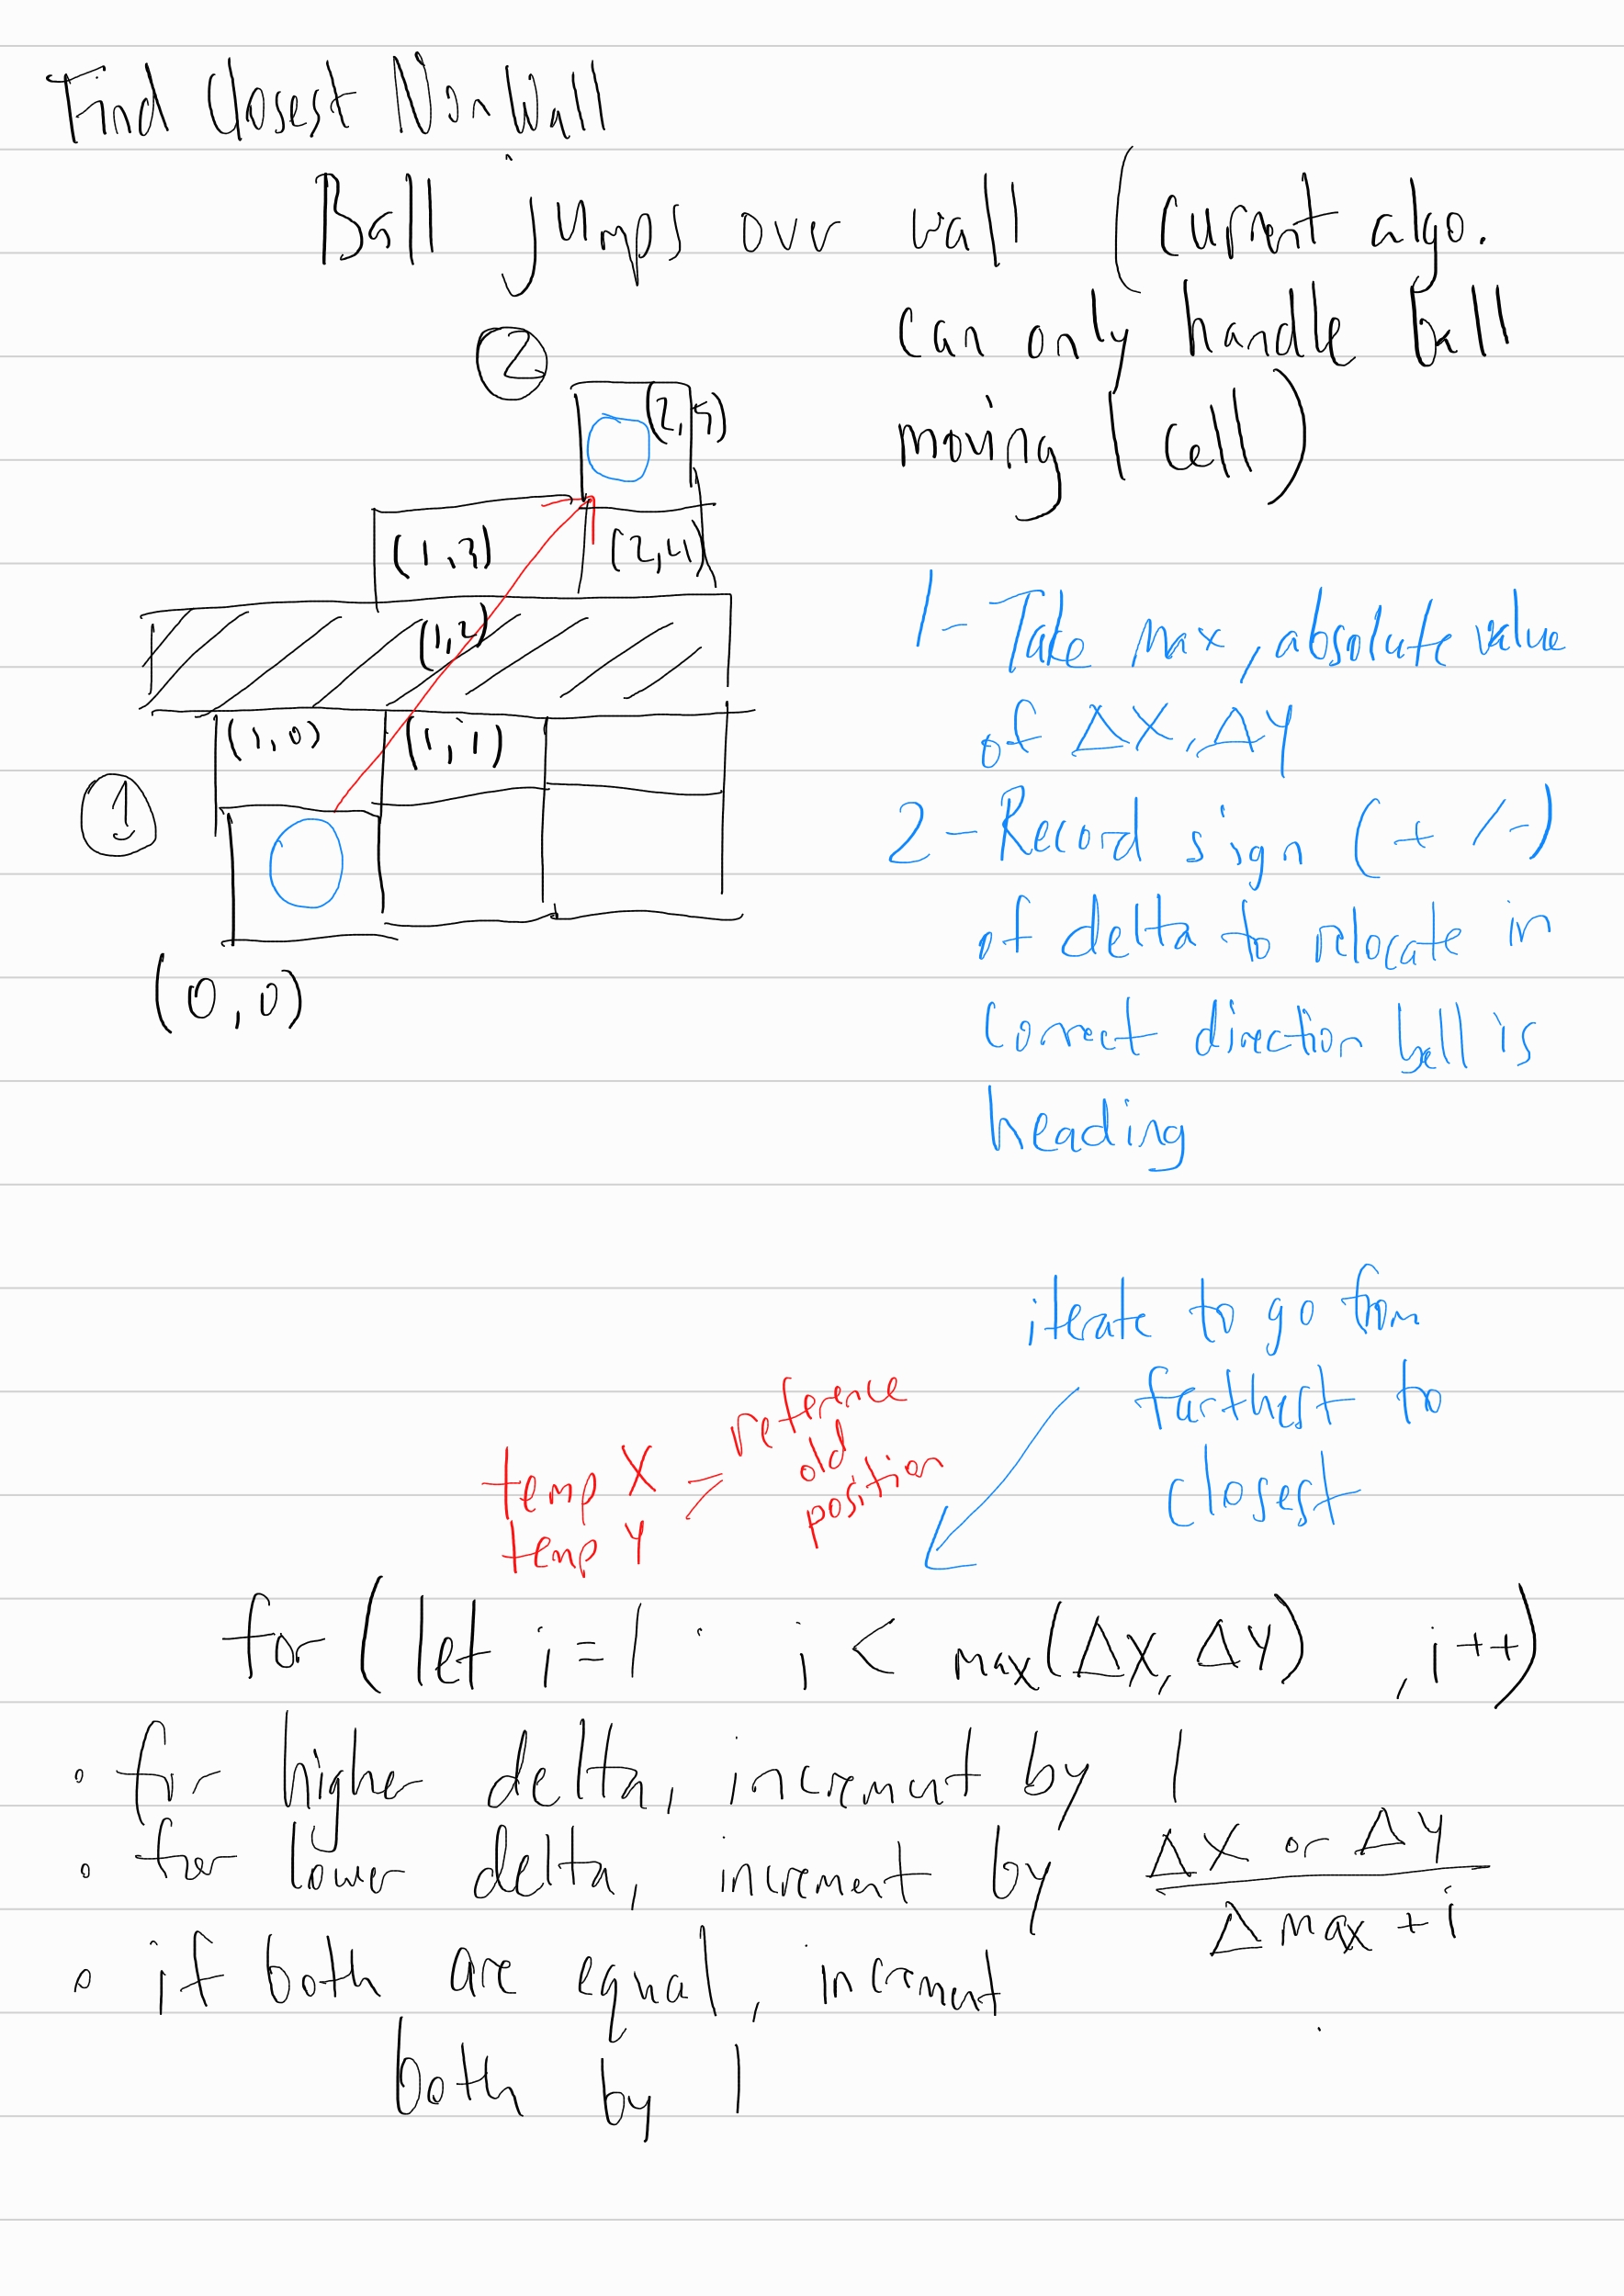 Find Closest Non Wall
Ball jumps over wall (current algo.
can only handle ball
moving 1 cell)
2
(2,5)
(1,3)
(2,4)
(1,2)
(1,0)
(1,1)
1
(0,0)
1- Take max, absolute value
of ΔX, ΔY
2- Record sign (+ /-)
of delta to relocate in
correct direction ball is
heading
iterate to go from
farthest to
closest
temp X
temp Y
= reference
old
position
for (let i=1 ; i < max(ΔX, ΔY) , i++)
• for higher delta, increment by 1
• for lower delta, increment by ΔX or ΔY
Δ max + i
• if both are equal, increment
both by 1